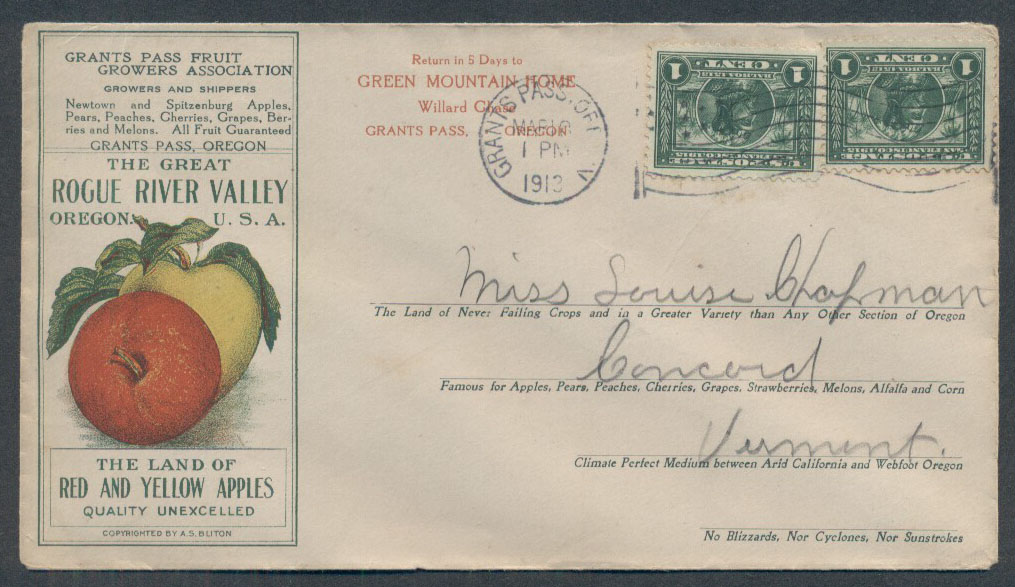 GRANTS PASS FRUIT
GROWERS ASSOCIATION
GROWERS AND SHIPPERS
Newtown and Spitzenburg Apples,
Pears, Peaches, Cherries, Grapes, Ber-
ries and Melons. All Fruit Guaranteed
GRANTS PASS, OREGON
THE GREAT
ROGUE RIVER VALLEY
OREGON. U. S. A.
THE LAND OF
RED AND YELLOW APPLES
QUALITY UNEXCELLED
COPYRIGHTED BY A.S. BLITON
Return in 5 Days to
GREEN MOUNTAIN HOME
Willard Chase
GRANTS PASS, OREGON
GRANTS PASS, ORE
1 PM
1913
1 CENT 1
BALBOA 1513
SAN FRANCISCO 1915
U.S. POSTAGE
1 CENT 1
BALBOA 1513
SAN FRANCISCO 1915
U.S. POSTAGE
Miss Louise Chapman
The Land of Never Failing Crops and in a Greater Variety than Any Other Section of Oregon
Concord
Famous for Apples, Pears, Peaches, Cherries, Grapes, Strawberries, Melons, Alfalfa and Corn
Vermont.
Climate Perfect Medium between Arid California and Webfoot Oregon
No Blizzards, Nor Cyclones, Nor Sunstrokes